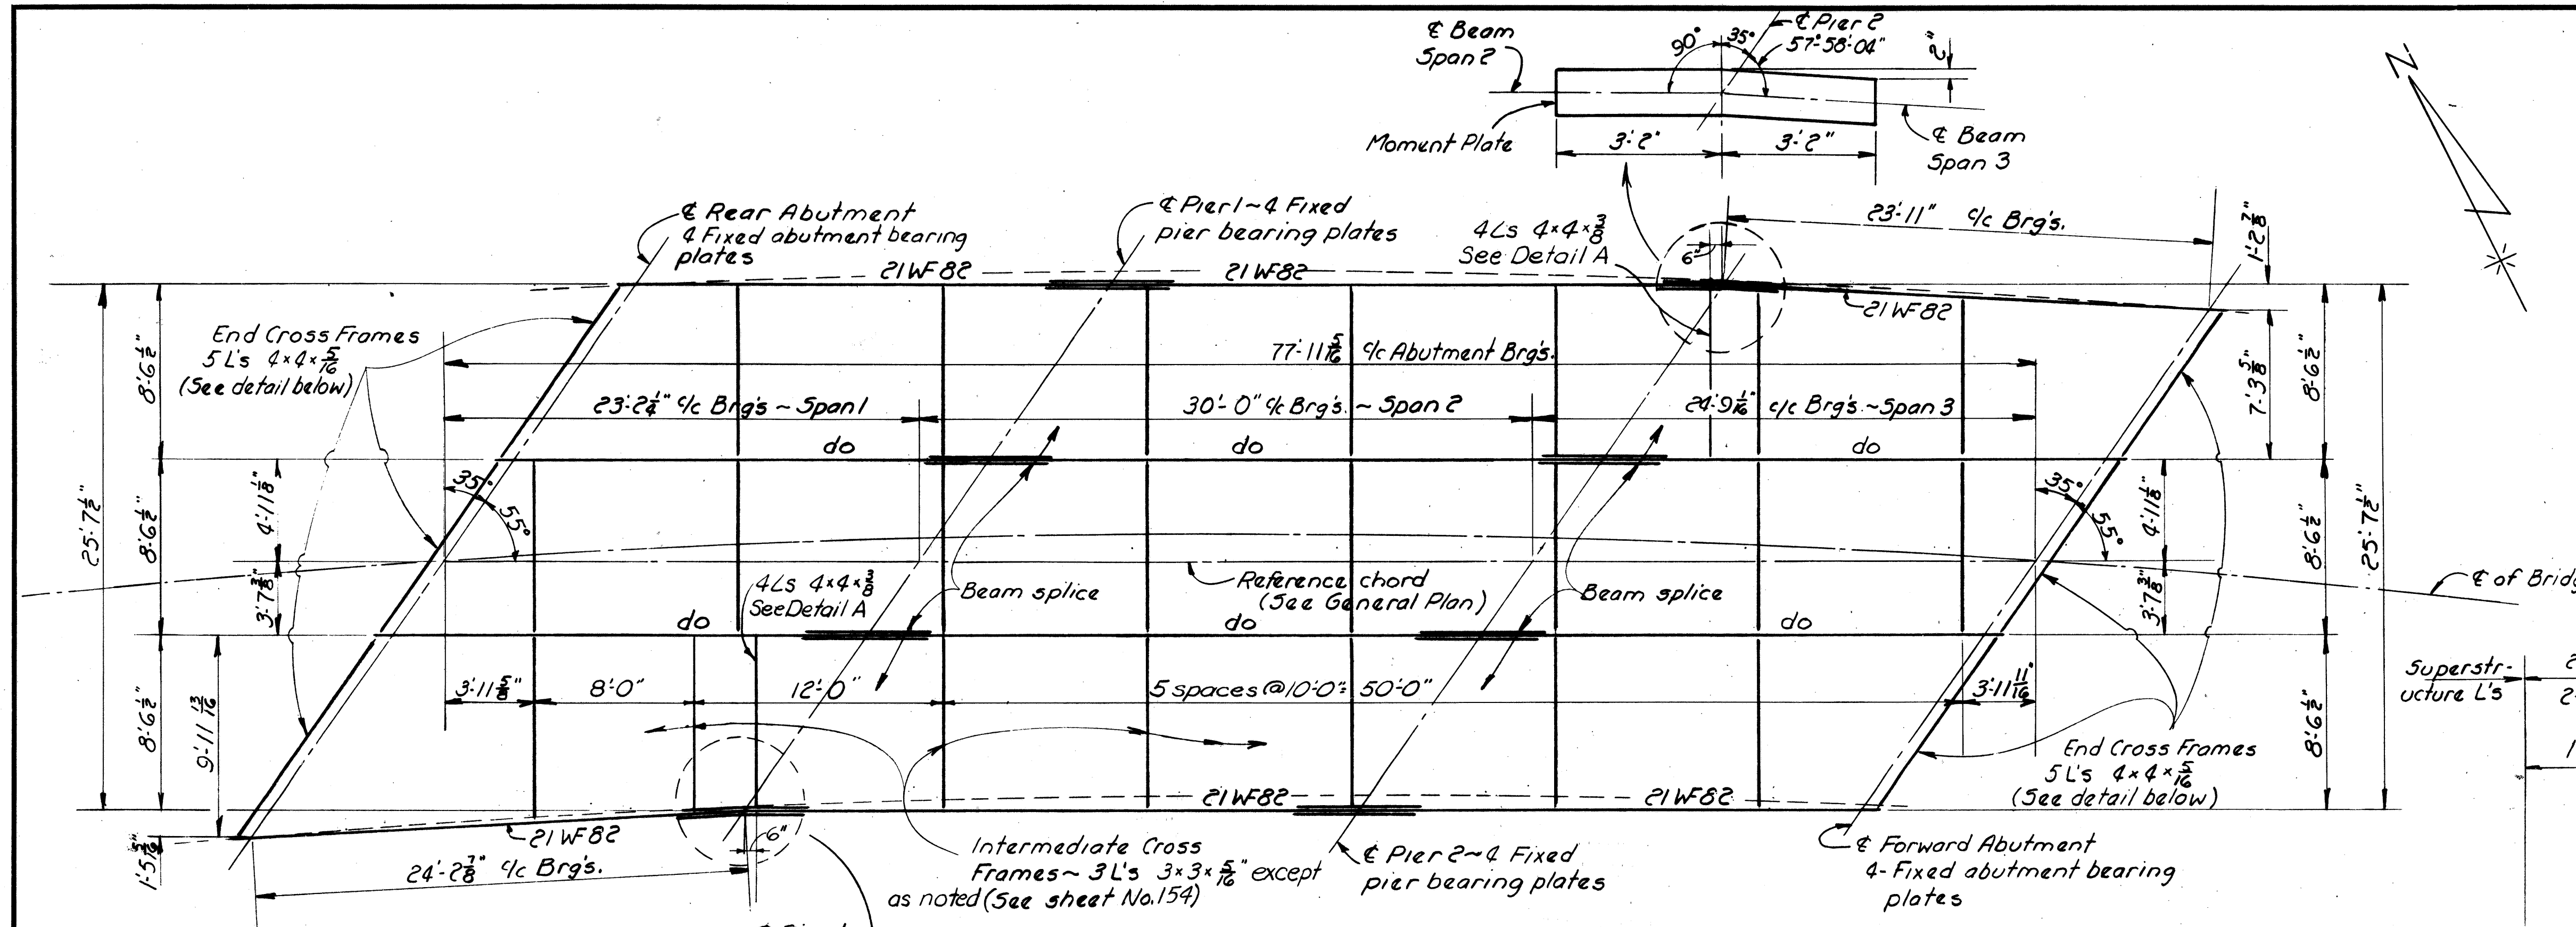 ℄ Beam
Span 2
90°
35°
℄ Pier 2
57°-58'-04"
2"
Moment Plate
3'-2"
3'-2"
℄ Beam
Span 3
N
℄ Rear Abutment
4 Fixed abutment bearing
plates
℄ Pier 1 ~ 4 Fixed
pier bearing plates
4 Ls 4×4×3/8
See Detail A
6"
23'-11" c/c Brg's.
1'-2 7/8"
21 WF 82
21 WF 82
21 WF 82
End Cross Frames
5 L's 4×4×5/16
(See detail below)
77'-11 5/16 c/c Abutment Brg's.
23'-2 1/4" c/c Brg's ~ Span 1
30'-0" c/c Brg's. ~ Span 2
24'-9 1/16 c/c Brg's. ~ Span 3
8'-6 1/2"
7'-3 5/8"
8'-6 1/2"
do
do
do
25'-7 1/2"
8'-6 1/2"
4'-11 1/8"
35°
55°
35°
55°
4'-11 1/8"
8'-6 1/2"
25'-7 1/2"
3'-7 3/8"
4 Ls 4×4×3/8
See Detail A
Beam splice
Reference chord
(See General Plan)
Beam splice
3'-7 3/8"
℄ of Brid
do
do
do
8'-6 1/2"
9'-11 13/16
3'-11 5/8"
8'-0"
12'-0"
5 spaces @ 10'-0" = 50'-0"
3'-11 11/16"
8'-6 1/2"
Superstr-
ucture L's
2
2
1
End Cross Frames
5 L's 4×4×5/16
(See detail below)
21 WF 82
21 WF 82
21 WF 82
1'-5 5/16"
6"
24'-2 7/8" c/c Brg's.
Intermediate Cross
Frames ~ 3 L's 3×3×5/16" except
as noted (See sheet No. 154)
℄ Pier 2 ~ 4 Fixed
pier bearing plates
℄ Forward Abutment
4-Fixed abutment bearing
plates